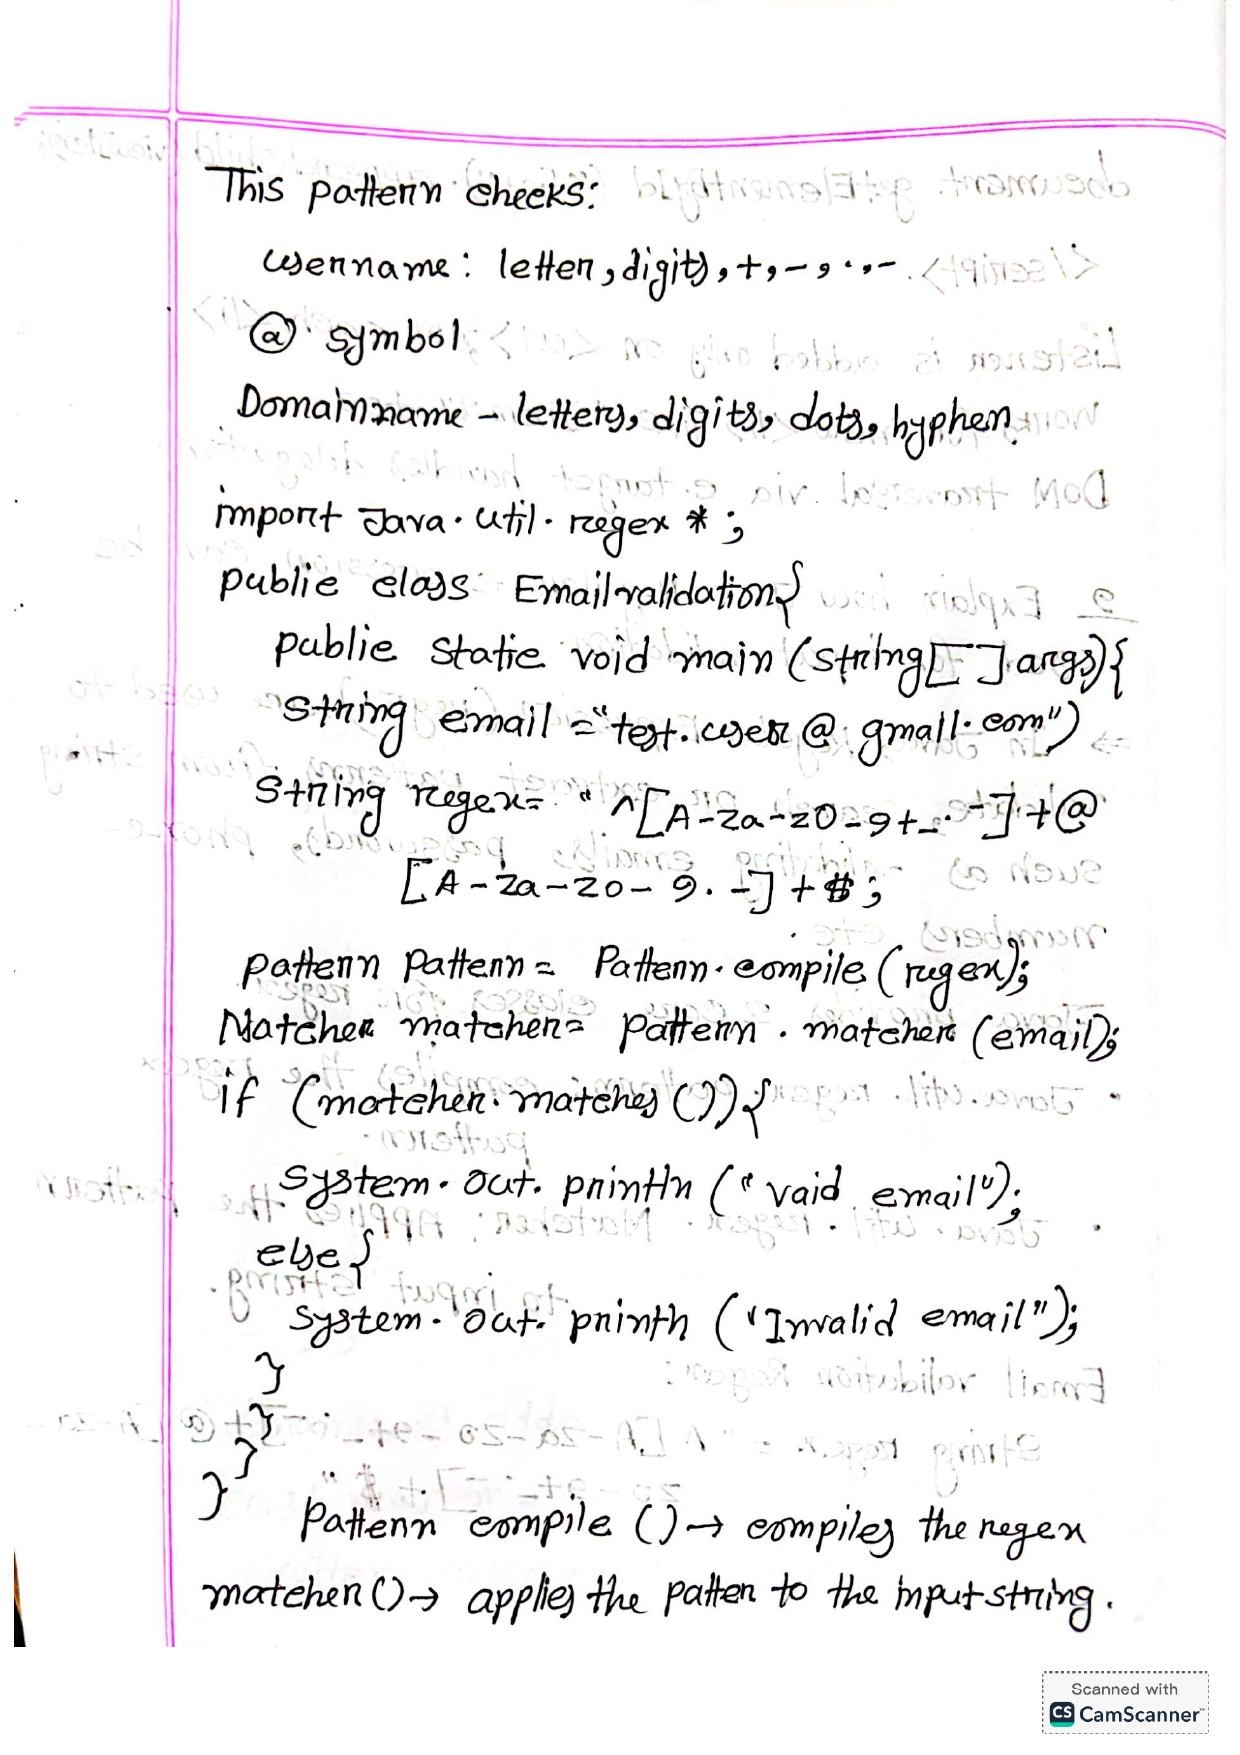 This pattern checks:
username: letter, digits, +, -, ., -
@ symbol
Domain name - letters, digits, dots, hyphen.
import Java.util.regex *;
public class Emailvalidation{
public static void main (string[] args){
string email = "test.user@gmail.com")
String regex= "^[A-Za-z0-9+_.-]+@
[A-Za-z0-9.-]+$;
pattern pattern = Pattern.compile (regex);
Matcher matcher= pattern.matcher (email);
if (matcher.matches ()){
system.out.println ("vaid email");
else{
system.out.println ("Invalid email");
}
}
}
}
pattern compile () → compiles the regex
matcher() → applies the patten to the input string.
Scanned with
CS CamScanner